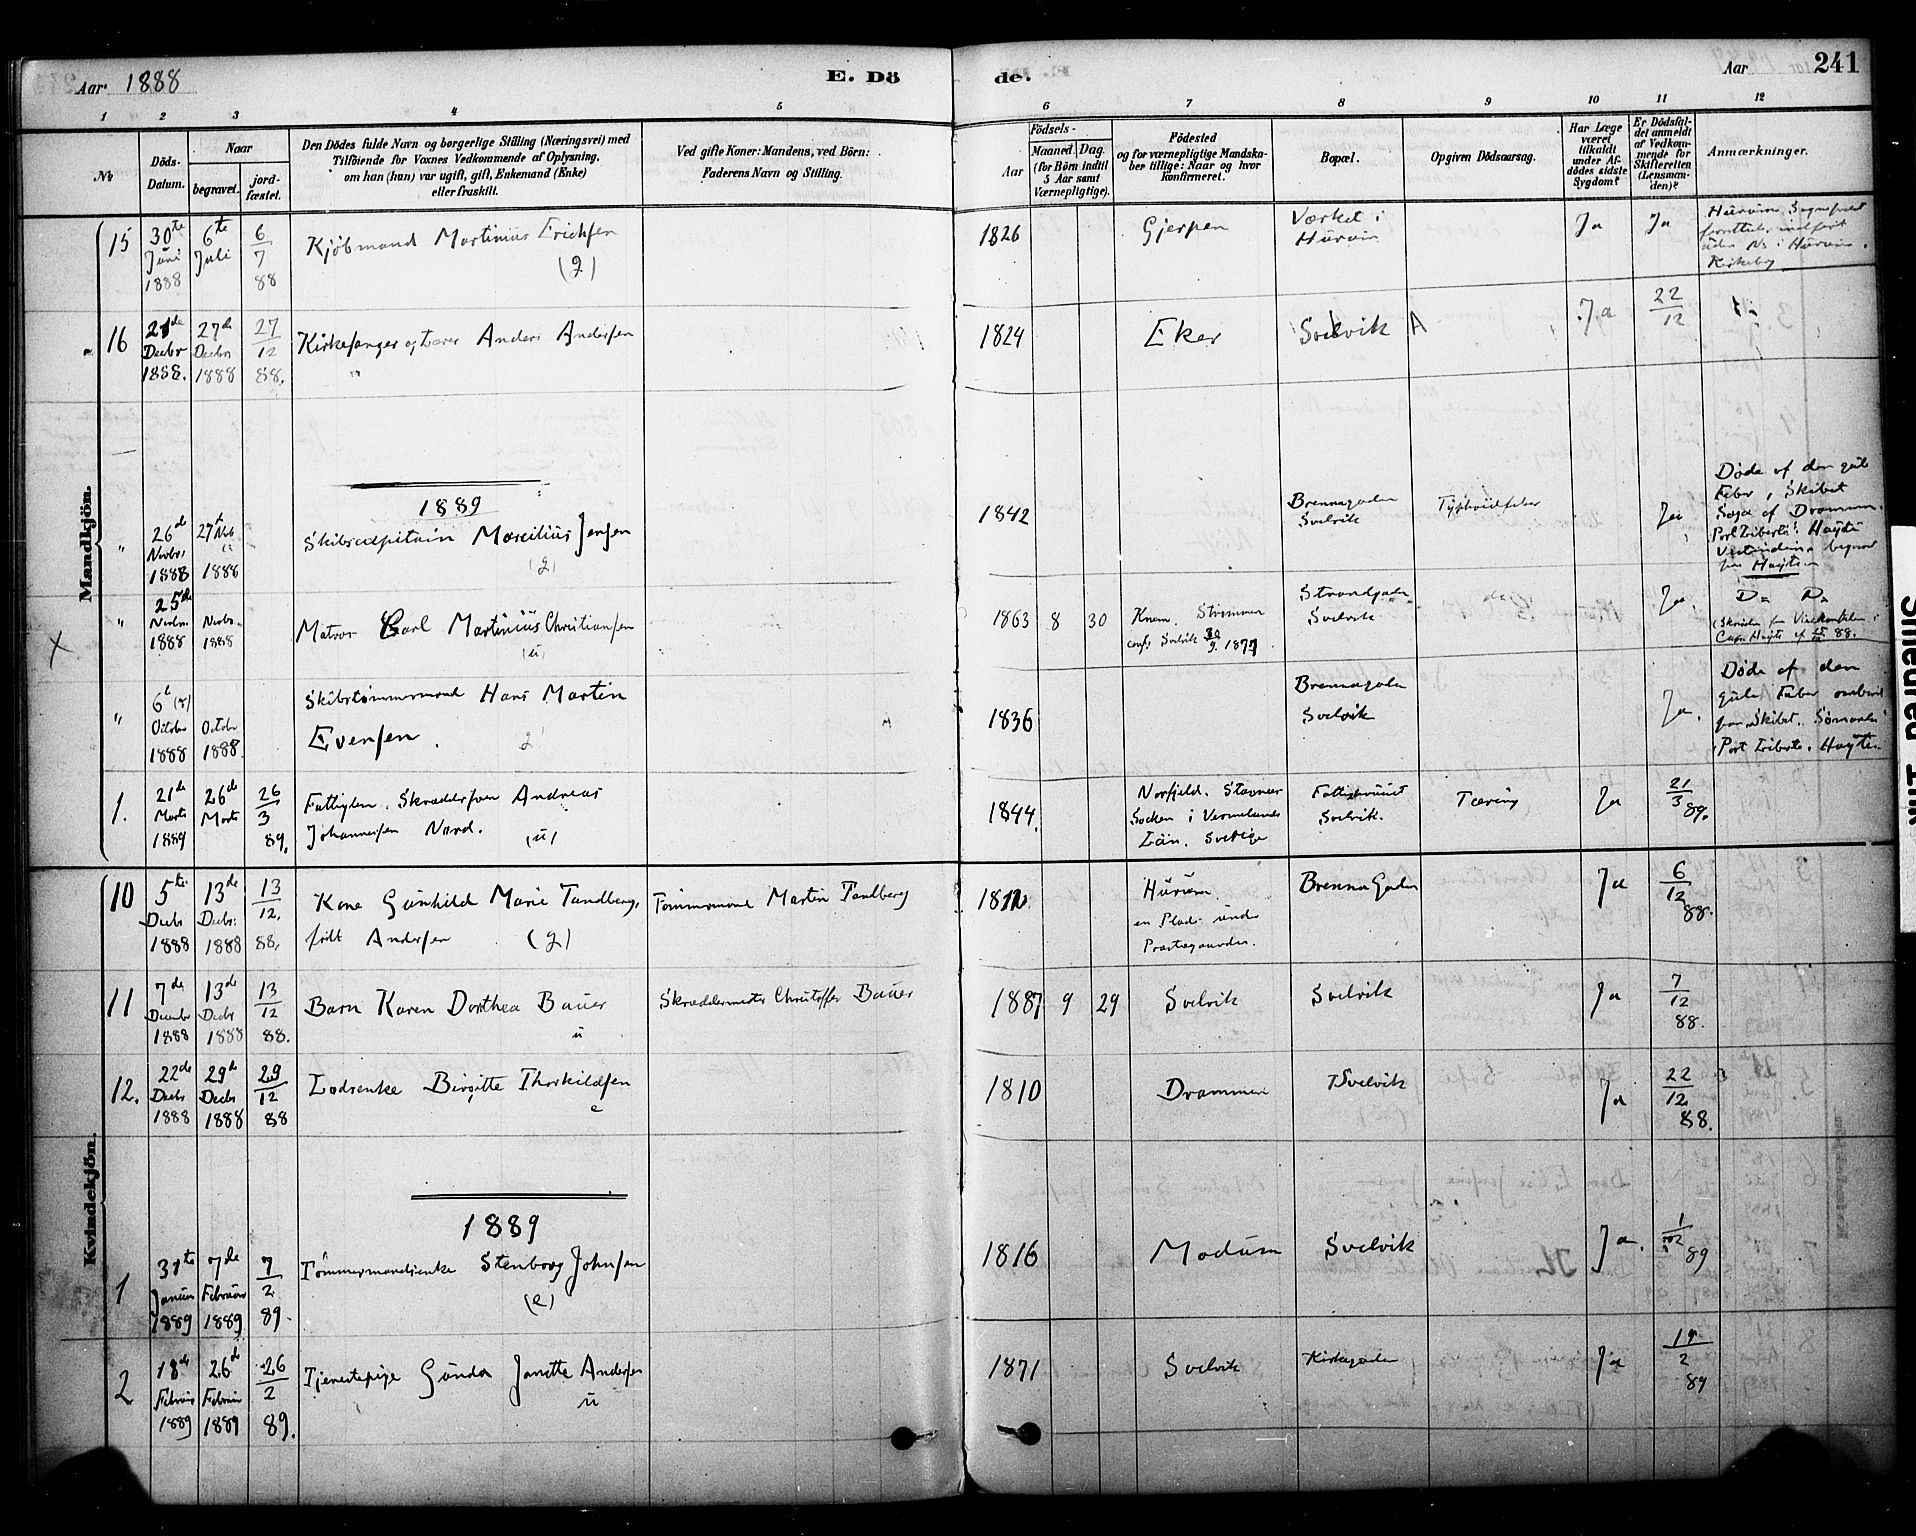 Aar 1888 E. Dö de. Aar 241
1 2 3 4 5 6 7 8 9 10 11 12
No
Döds-Datum.
Naar
begravet.
jordfæstet.
Den Dödes fulde Navn og borgerlige Stilling (Næringsvei) med
Tilföiende for Voxnes Vedkommende af Oplysning,
om han (hun) var ugift, gift, Enkemand (Enke)
eller fraskilt.
Ved gifte Koner: Mandens, ved Börn:
Faderens Navn og Stilling.
Födsels-
Aar
Maaned. Dag.
(for Börn indtil
5 Aar samt
Værnepligtige).
Födested
og for værnepligtige Mandska-
ber tillige: Naar og hvor
konfirmeret.
Bopæl.
Opgiven Dödsaarsag.
Har Læge
været
tilkaldt
under Af-
dödes sidste
Sygdom?
Er Dödsfal-
det anmeldt
af Vedkom-
mende for
Skifteretten
(Lensman-
den)?
Anmærkninger.
Mandkjön.
15 30te Juni 1888 6te Juli 6/7 88 Kjöbmand Martinius Erichsen (g) 1826 Gjerpen Værket i Hurum Ja Ja Hurum Sognepræst
uden No i Hurum Kirkebog
16 21de Decbr 1888. 27de Decbr 1888 27/12 88. Kirkesanger og Lærer Anders Andersen 1824 Eker Svelvik Ja 22/12
1889
" 26de Novbr 1888 27de Novb 1888 Skibscapitain Marcilius Jensen (g) 1842 Brennagaden Svelvik Typhoidfeber Ja Døde af den gule
Feber, Skibet
Saga af Drammen.
Port Liberté Hayti
Vestindien begravet
paa Hayti
X " 25de Novbr. 1888 Novbr. 1888 Matros Carl Martinius Christiansen (u) 1863 8 30 Strømmen
conf. Svelvik 30/9 1877 Strandgaden Svelvik Ja. Do Do
" 6te October 1888 October 1888. Skibstømmermand Hans Martin
Evensen. g 1836 Brennagaden Svelvik Ja. Døde af den
gule Feber ombord
paa Skibet
Port Liberté. Hayti
1. 21de Marts 1889 26de Marts 26/3 89. Fattiglem. Skrædders Andreas
Johannesen Nord. (u) 1844. Norfjeld. Stavnes
Socken i Vermelands
Län. Sverige Fattighuset Svelvik. Tæring Ja 21/3 89.
Kvindekjön.
10 5te Decbr 1888 13de Decbr. 1888 13/12 88. Kone Gunhild Marie Tandberg,
født Andersen (g) Tømmermand Martin Tandberg Hurum
en Plads under
Præstegaarden. Brenna Gaden Ja 6/12 88.
11 7de Decembr 1888 13de Decbr 1888 13/12 88. Barn Karen Dorthea Bauer u Skræddermester Christoffer Bauer 1887 9 29 Svelvik Svelvik Ja 7/12 88.
12. 22de Decbr 1888 29de Decbr 1888 29/12 88 Lodsenke Birgitte Thorkildsen e 1810 Drammen Svelvik Ja 22/12 88.
1889
1 31te Januar 1889 7de Februar 1889 7/2 89. Tømmermandsenke Stenborg Johnsen (e) 1816 Modum Svelvik Ja. 1/2 89
2 18de Februar 1889 26de Februar 1889 26/2 89. Tjenestepige Gunda Janette Andersen u 1871 Svelvik Kirkegaden Ja 19/2 89